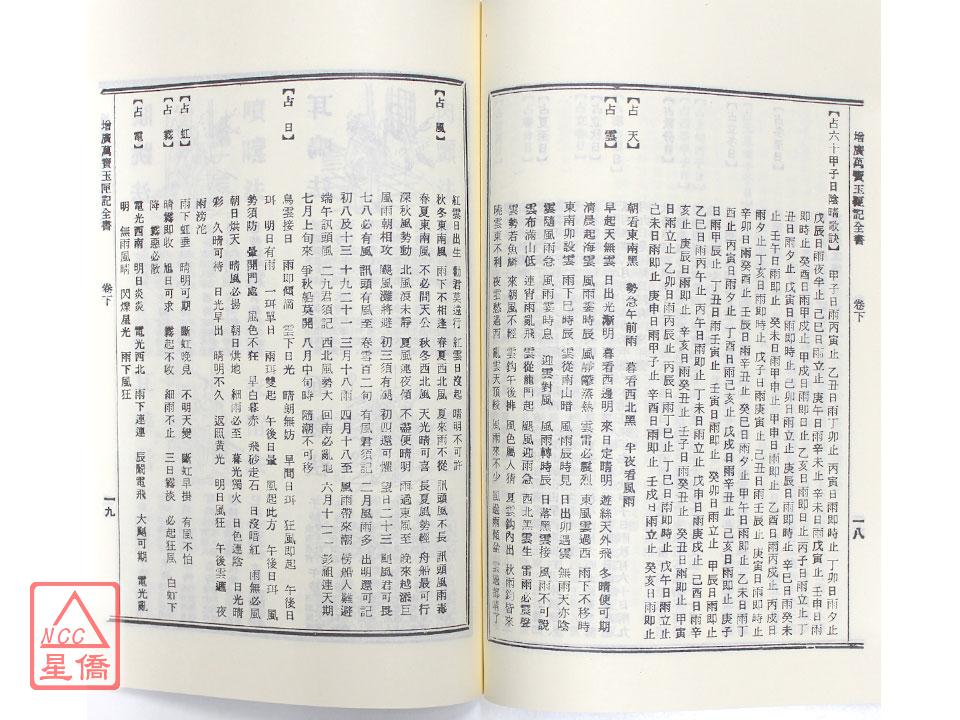 增廣萬寶玉匣記全書 卷下 一八
【占六十甲子日陰晴歌訣】 甲子日雨丙寅止 乙丑日雨丁卯止 丙寅日雨即時止 丁卯日雨夕止
戊辰日雨夜半止 己巳日雨立止 庚午日雨辛未止 辛未日雨戊寅止 壬申日雨
即時止 癸酉日雨甲戌止 甲戌日雨即止 乙亥日雨即時止 丙子日雨立止 丁
丑日雨夕止 戊寅日雨即時止 己卯日雨立止 庚辰日雨即止 辛巳日雨癸未
止 壬午日雨即止 癸未日雨甲申止 甲申日雨即止 乙酉日雨丙戌止 丙戌日
雨夕止 丁亥日雨即時止 戊子日雨庚寅止 己丑日雨壬辰止 庚寅日雨即時止
辛卯日雨癸酉止 壬辰日雨辛丑止 癸巳日雨夕止 甲午日雨即止 乙未日雨丁
酉止 丙寅日雨夕止 丁酉日雨己亥止 戊戌日雨辛丑止 己亥日雨即止 庚子
日雨甲辰止 辛丑日雨壬寅止 壬寅日雨即止 癸卯日雨立止 甲辰日雨即止
乙巳日雨丙午止 丙午日雨即止 丁未日雨立止 戊申日雨庚戌止 己酉日雨辛亥
日雨立止 乙卯日雨丙辰止 丙辰日雨丁巳止 丁巳日雨即時止 戊午日雨即止
己未日雨即止 庚申日雨甲子止 辛酉日雨即止 壬戌日雨即止 癸亥日雨即止
【占 天】 朝看東南黑 勢急午前雨 暮看西北黑 半夜看風雨
【占 雲】 早起天無雲 日出光漸明 暮看西邊明 來日定晴明 遊絲天外飛 冬晴便可期
清晨起海雲 風雨霎時辰 風靜鬱蒸熱 雲雷必震烈 東風雲過西 雨下不移時
東南卯設雲 雨下巳時辰 雲從南山暗 風雨辰時見 日出卯遇雲 無雨天亦陰
雲隨風雨急 風雨霎時息 迎雲對風 風雨轉時辰 日落黑雲接 風雨不可說
雲布滿山低 連宵雨亂飛 雲從龍門起 颶風連雨急 西北黑雲生 雷雨必震聲
雲勢若魚鱗 來朝風不輕 雲鈎午後排 風色屬人猜 夏雲鈎內出 秋雨鈎背來
增廣萬寶玉匣記全書 卷下 一九
【占 風】 紅雲日出生 勸君莫遠行 紅雲日沒起 晴明不可許
秋冬東南風 雨下不相逢 春夏西北風 夏來雨不從 訊頭風不長 訊頭風雨毒
春夏東南風 不必問天公 秋冬西北風 天光晴可喜 長夏風勢輕 舟船最可行
深秋風勢動 北風浪未靜 夏風連夜傾 不盡便晴明 雨過東風至 晚來越添巨
風雨朝相攻 颶風灘將避 初三須有颶 初四還可懼 望日二十三 颶風君可畏
七八必有風 訊頭有風至 春雪百二旬 有風君須記 二月風雨多 出明還可記
初八及十三 十九二十一 三月十八雨 四月十八至 風雨帶來潮 傍船人難避
端午訊頭風 二九君須記 西北風勢大 回南必亂地 六月十一二 彭祖連天期
七月上旬來 爭秋船莫開 八月中旬時 隨潮不可移
【占 日】 烏雲接日 雨即傾滴 雲下日光 晴朗無妨 早間日珥 狂風即起 午後日
珥 明日有雨 一珥單日 兩珥雙起 午後日暈 風起此方 午後日珥 風
勢須防 暈開門處 風色不狂 早白暮赤 飛砂走石 日沒暗紅 雨無必風
朝日烘天 晴風必揚 朝日供地 細雨必至 暮光獨火 日色連陰 日光晴
彩 久晴可待 日光早出 晴明不久 返照黃光 明日風狂 午後雲遮 夜
雨滂沱
【占 虹】 雨下虹垂 晴明可期 斷虹晚見 不明天變 斷虹早掛 有風不怕
【占 霧】 晴霧即收 旭日可求 霧起不收 細雨不止 三日霧淡 必起狂風 白如下
降 霧惡必散
【占 電】 電光西南 明日炎炎 電光西北 雨下連連 辰闕電飛 大颶可期 電光亂
明 無雨風晴 閃爍星光 雨下風狂
NCC
星僑